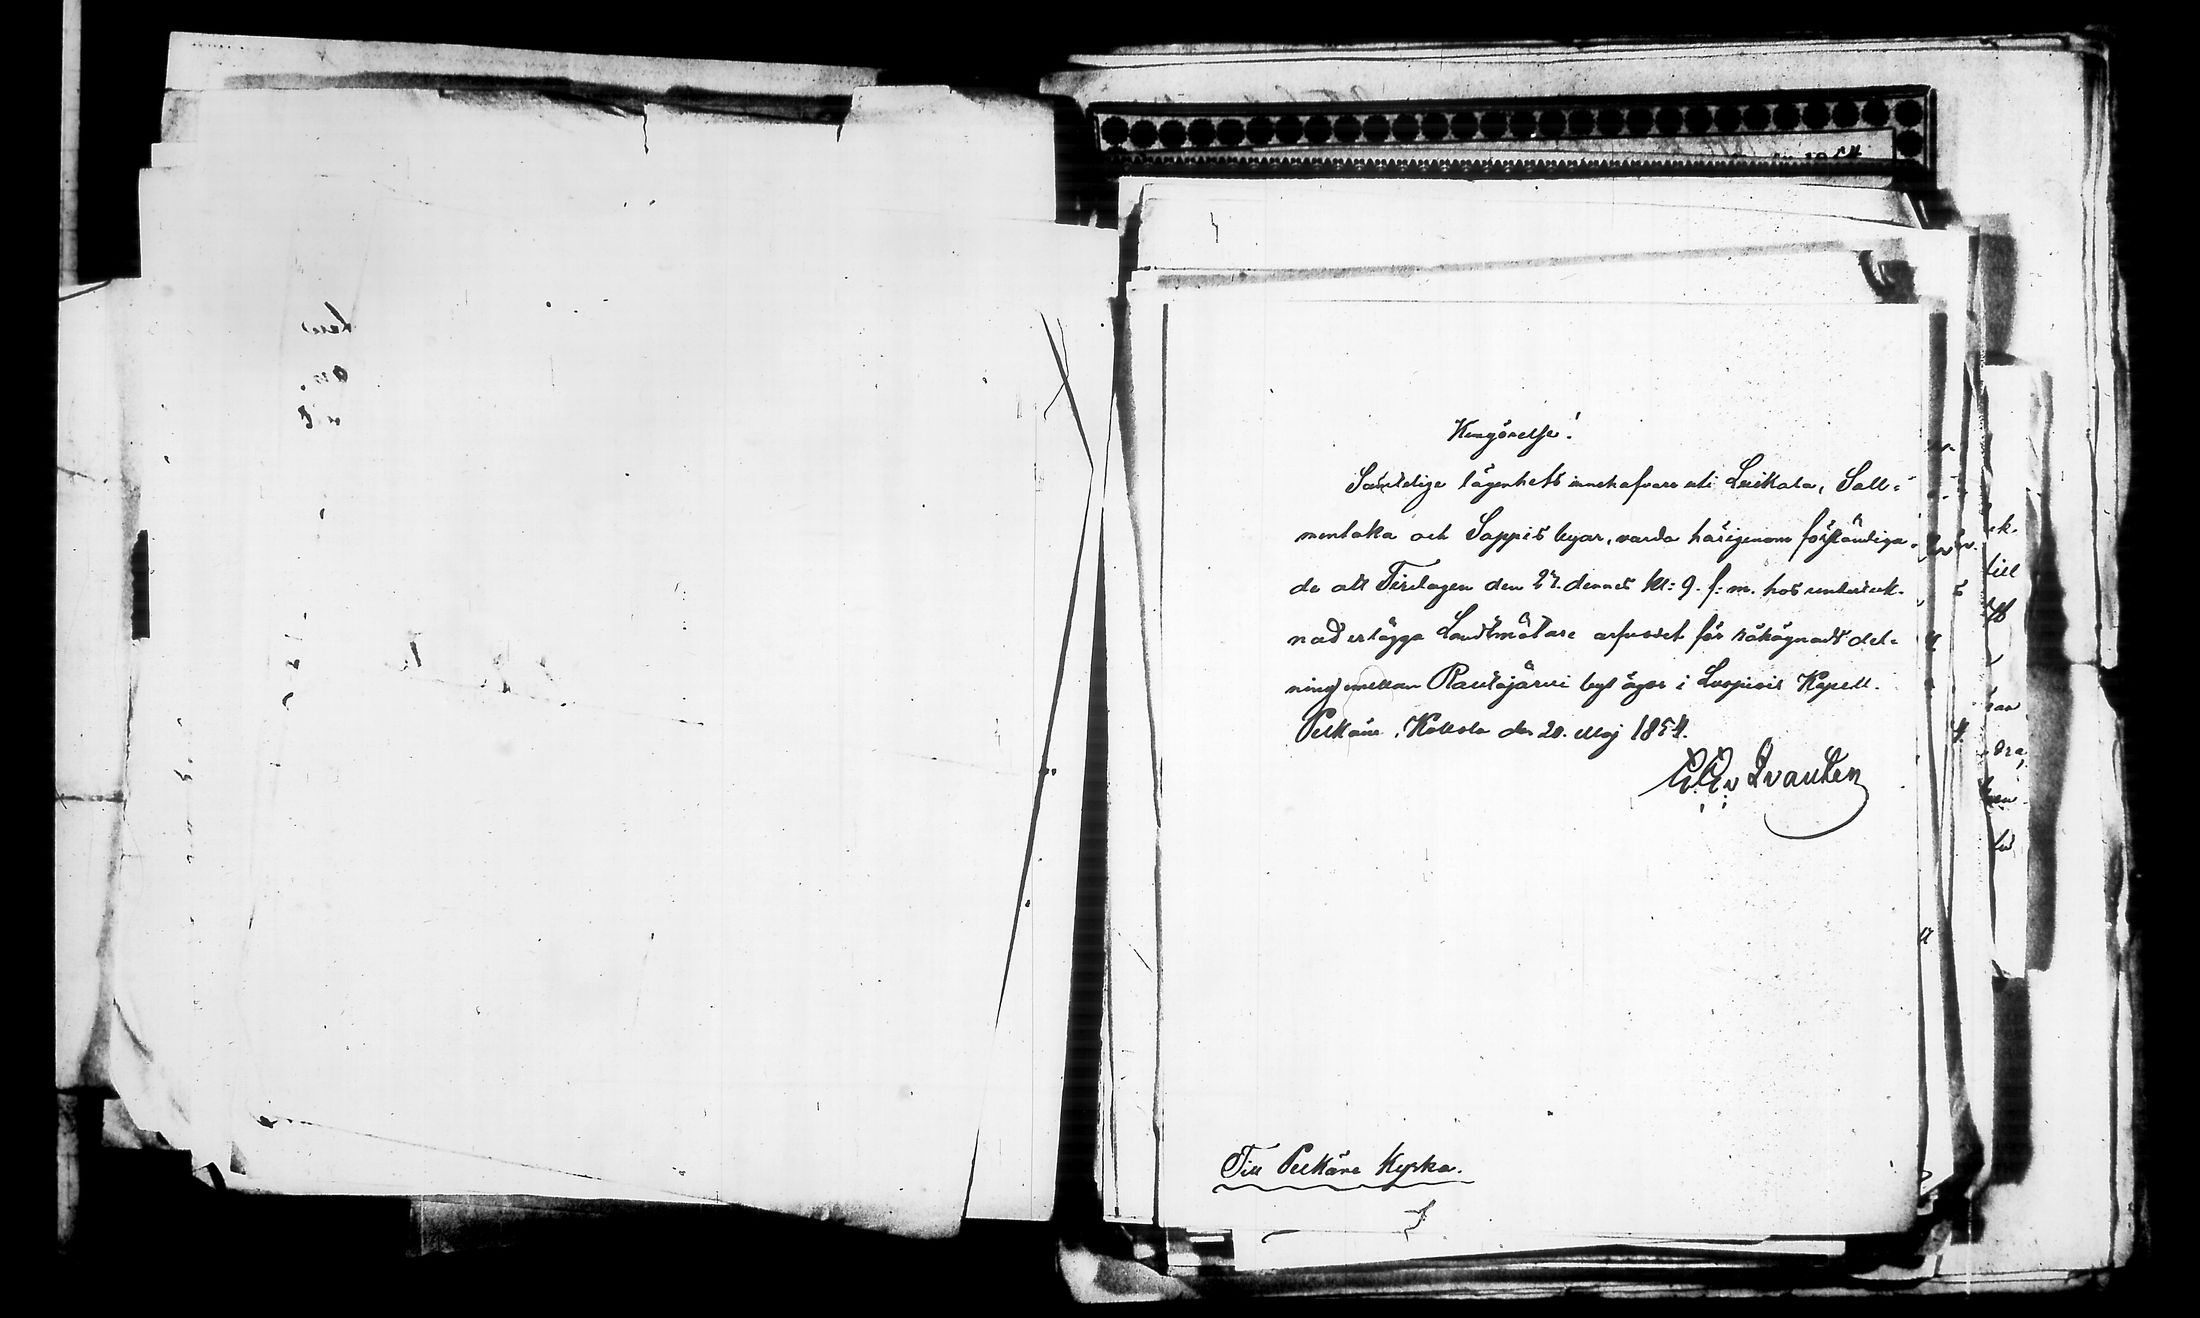 Kungörelse!
Samtelige lägenhets innehafvare uti Luikala, Sall-
mentaka och Sappis byar, varda härigenom förständiga-
de att Tisdagen den 27. dennes kl: 9. f: m. hos underteck-
nad erlägga Landtmätare arfvodet för råhägnads del-
ning emellan Rautajärvi byt ägor i Luopiois Kapell.
Pelkäne, Kollola den 20. Maj 1854.
Till Pelkäne Kyrka.
till